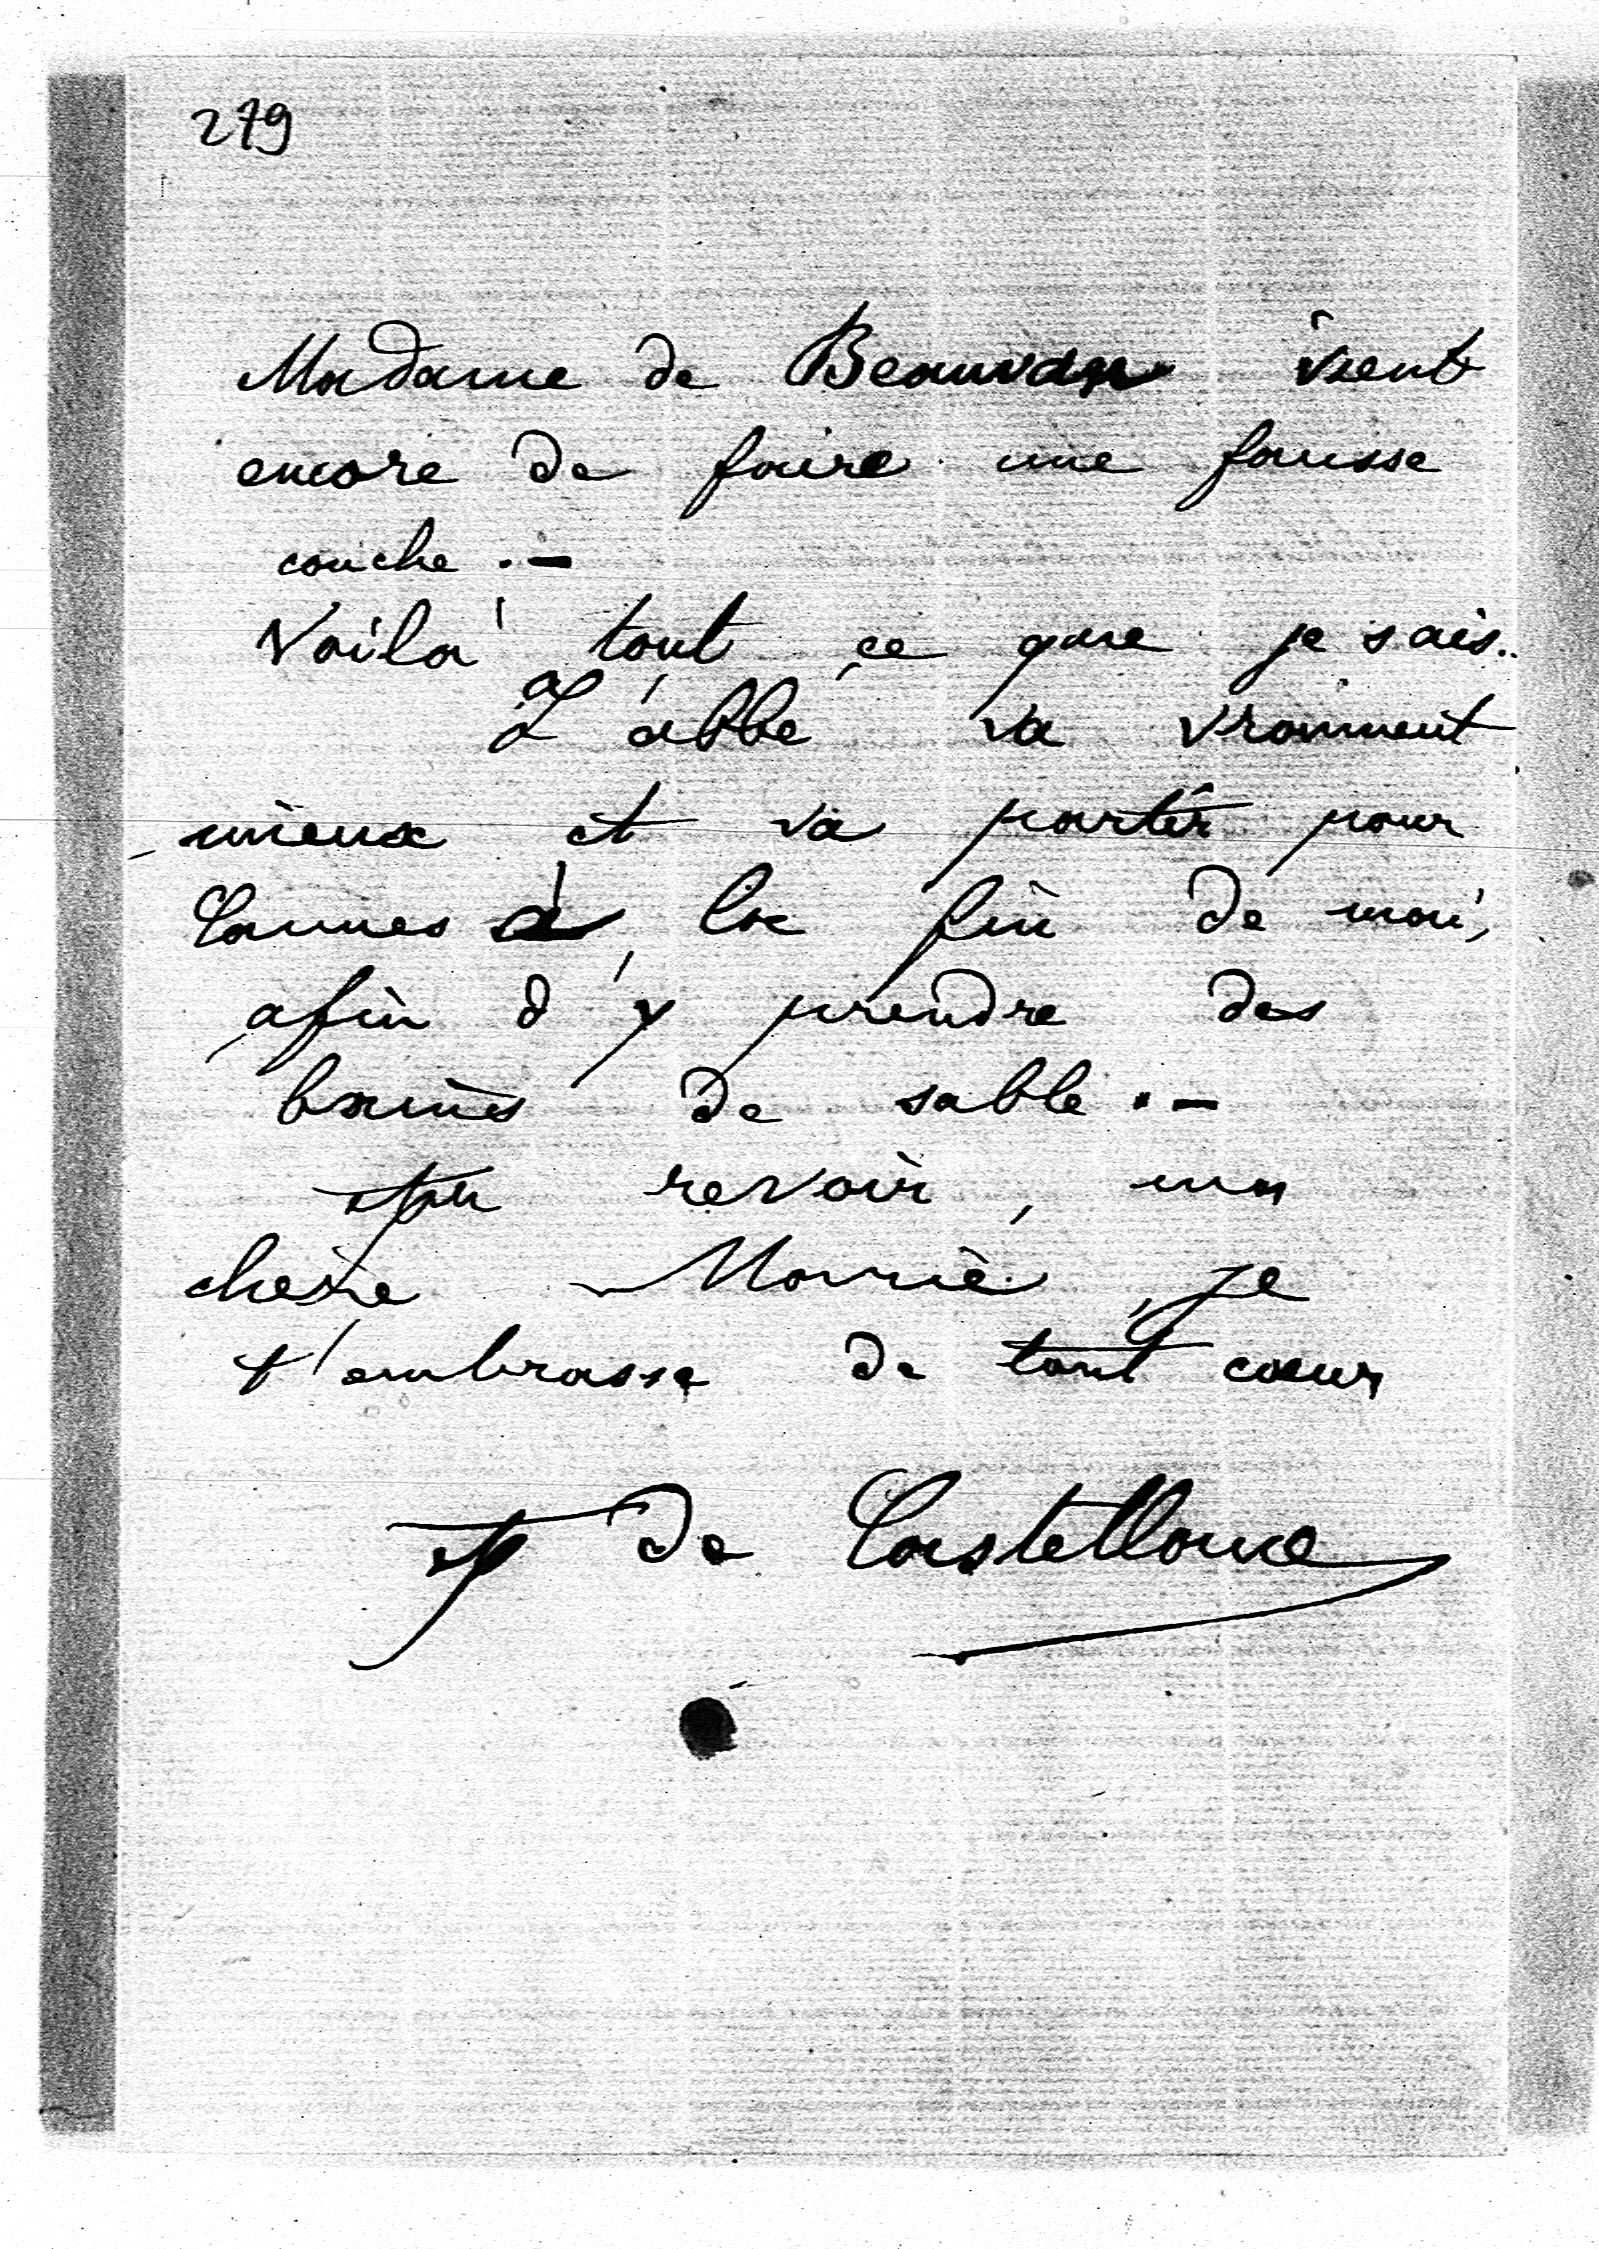 279
Madame de Beauvau vient
encore de faire une fausse
couche . -
Voilà tout ce que je sais..
L'abbé va vraiment
mieux et va partir pour
Cannes à la fin de mai,
afin d'y prendre des
bains de sable . -
Au revoir, ma
chère Marie, je
t'embrasse de tout cœur
A de Castellane